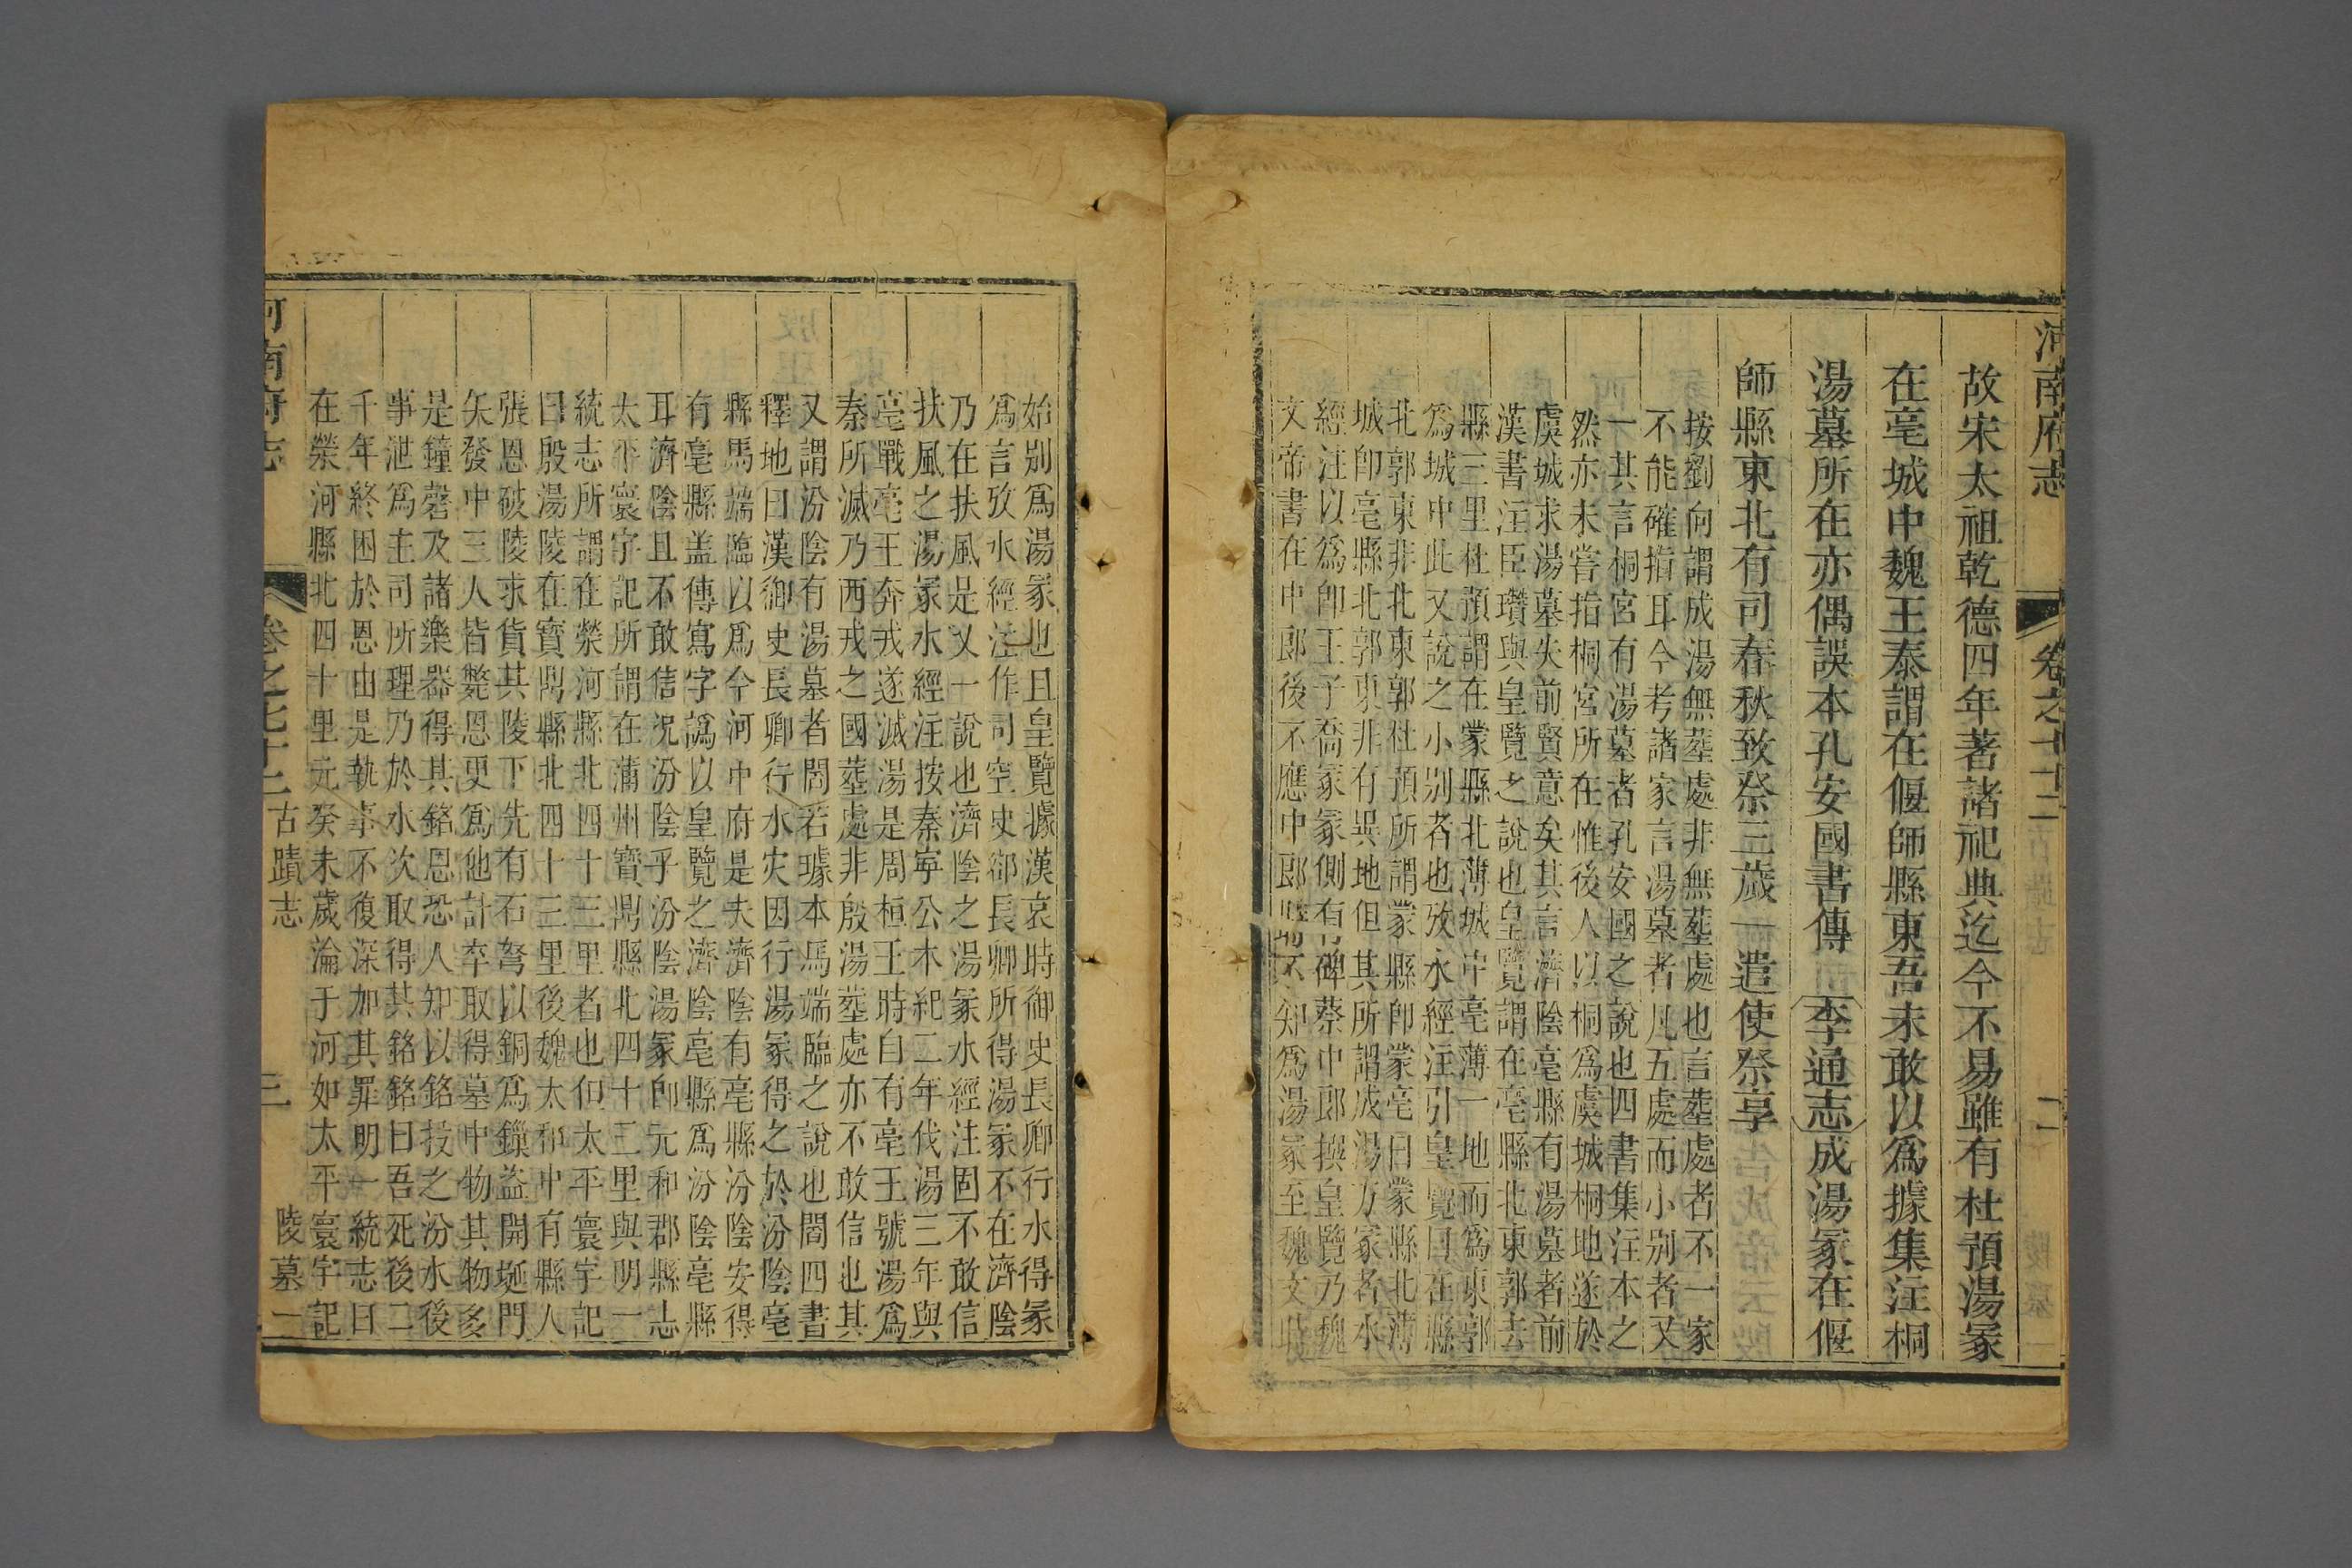 河南府志
卷之七十二
二
故宋太祖乾德四年著諸祀典迄今不易雖有杜預湯冢
在亳城中魏王泰謂在偃師縣東吾未敢以爲據集注桐
湯墓所在亦偶誤本孔安國書傳 李通志成湯冢在偃
師縣東北有司春秋致祭三歲一遣使祭享
按劉向謂成湯無塟處非無塟處也言塟處者不一家
不能確指耳今考諸家言湯墓者凡五處而小别者又
一其言桐宮有湯墓者孔安國之說也四書集注本之
然亦未嘗指桐宮所在惟後人以桐爲虞城桐地遂於
虞城求湯墓失前賢意矣其言濟陰亳縣有湯墓者前
漢書注臣瓚與皇覽之說也皇覽謂在亳縣北東郭去
縣三里杜預謂在蒙縣北薄城中亳薄一地而爲東郭
爲城中此又說之小别者也攷水經注引皇覽曰在縣
北郭東非北東郭杜預所謂蒙縣卽蒙亳曰蒙縣北薄
城卽亳縣北郭東非有異地但其所謂成湯方冢者水
經注以爲卽王子喬冢冢側有碑蔡中郎撰皇覽乃魏
文帝書在中郎後不應中郎 不知爲湯冢至魏文時
始别爲湯冢也且皇覽據漢哀時御史長卿行水得冢
爲言攷水經注作司空史郤長卿所得湯冢不在濟陰
乃在扶風是又一說也濟陰之湯冢水經注固不敢信
扶風之湯冢水經注按秦寧公本紀二年伐湯三年與
亳戰亳王奔戎遂滅湯是周桓王時自有亳王號湯爲
秦所滅乃西戎之國塟處非殷湯塟處亦不敢信也其
又謂汾陰有湯墓者閻若璩本馬端臨之說也閻四書
釋地曰漢御史長卿行水灾因行湯冢得之於汾陰亳
縣馬端臨以爲今河中府是夫濟陰有亳縣汾陰安得
有亳縣盖傳寫字譌以皇覽之濟陰亳縣爲汾陰亳縣
耳濟陰且不敢信况汾陰乎汾陰湯冢卽元和郡縣志
太平寰宇記所謂在蒲州寶鼎縣北四十三里與明一
統志所謂在榮河縣北四十三里者也但太平寰宇記
曰殷湯陵在寶鼎縣北四十三里後魏太和中有縣人
張恩破陵求貨其陵下先有石弩以銅爲鏁盜開埏門
矢發中三人皆斃恩更爲他計卒取得墓中物其物多
是鐘磬及諸樂器得其銘恩恐人知以銘投之汾水後
事泄爲主司所理乃於水次取得其銘銘曰吾死後二
千年終困於恩由是執事不復深加其罪明一統志曰
在榮河縣北四十里元癸未歲淪于河如太平寰宇記
河南府志
卷之七十二
古蹟志
三
陵墓一